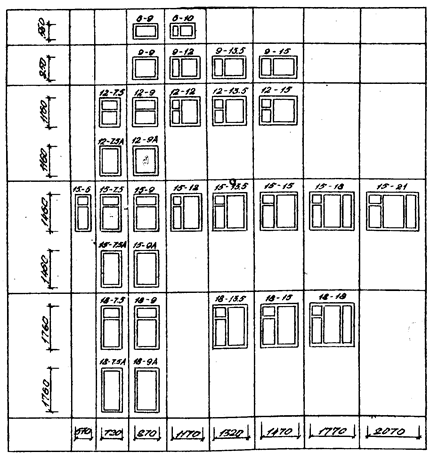 6-9 6-10
560
9-9 9-12 9-13,5 9-15
870
12-7,5 12-9 12-12 12-13,5 12-15
1160
12-7,5А 12-9А
1160
15-6 15-7,5 15-9 15-12 15-13,5 15-15 15-18 15-21
1460
15-7,5А 15-9А
1460
18-7,5 18-9 18-13,5 18-15 18-18
1760
18-7,5А 18-9А
1760
570 720 870 1170 1320 1470 1770 2070